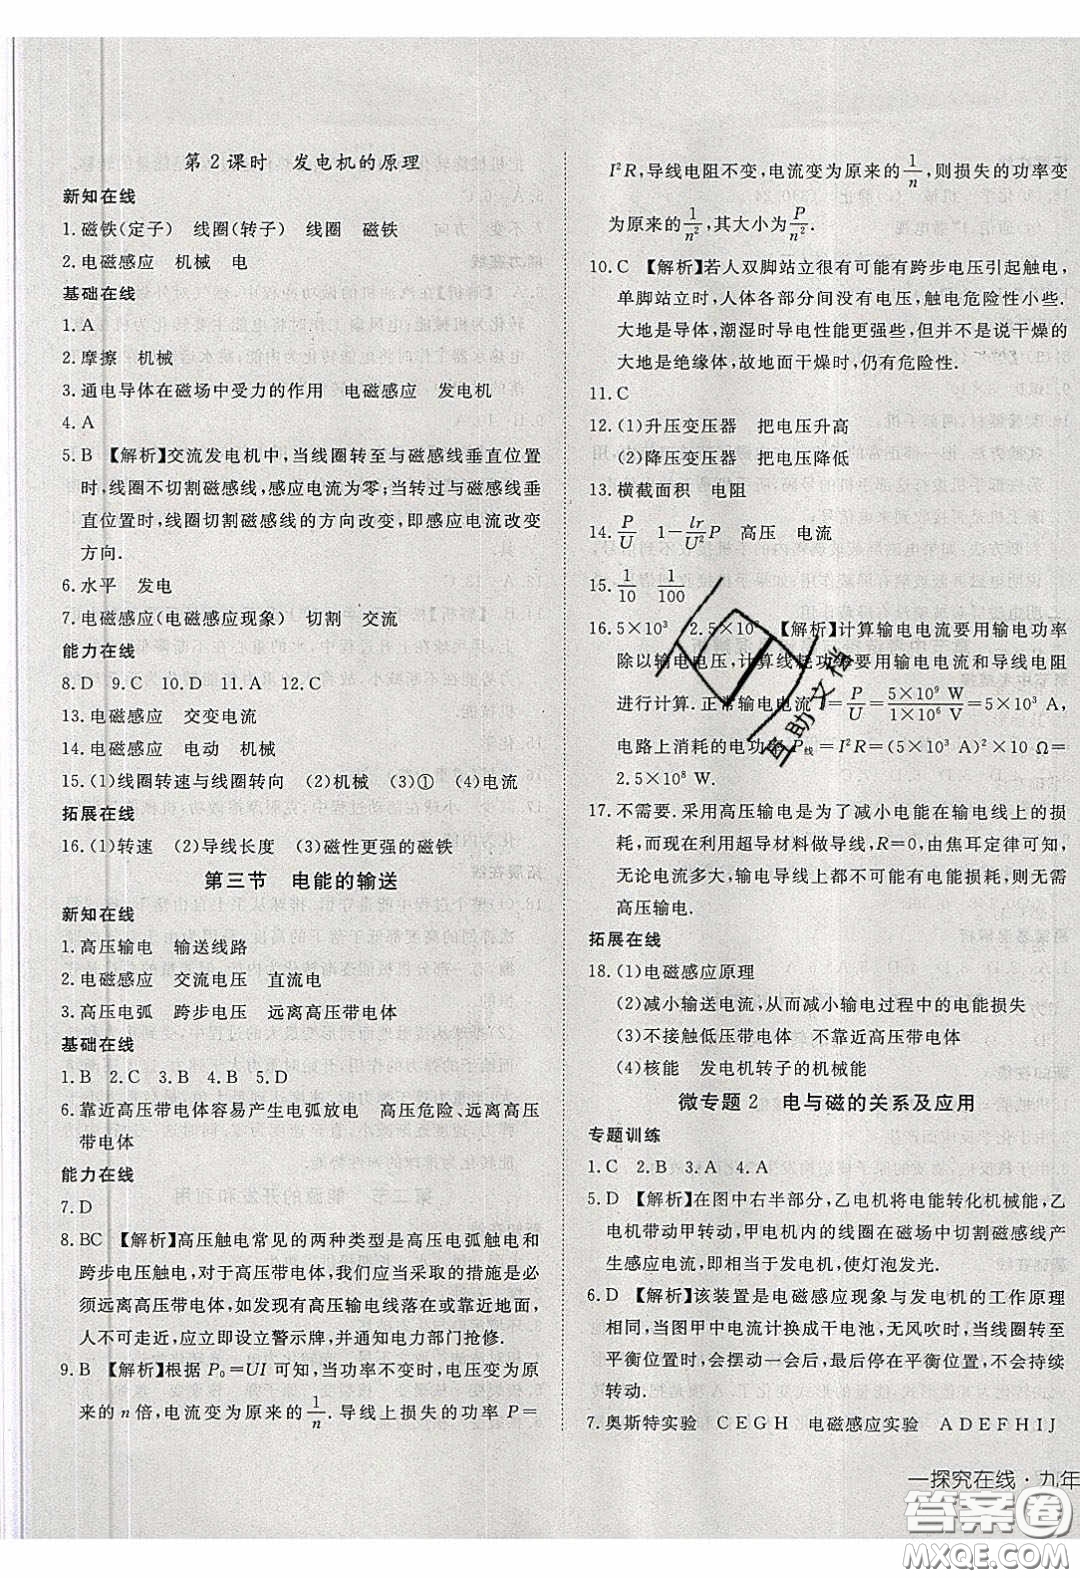 第2课时 发电机的原理
新知在线
1.磁铁(定子) 线圈(转子) 线圈 磁铁
2.电磁感应 机械 电
基础在线
1.A
2.摩擦 机械
3.通电导体在磁场中受力的作用 电磁感应 发电机
4.A
5.B 【解析】交流发电机中,当线圈转至与磁感线垂直位置
时,线圈不切割磁感线,感应电流为零;当转过与磁感线垂
直位置时,线圈切割磁感线的方向改变,即感应电流改变
方向.
6.水平 发电
7.电磁感应(电磁感应现象) 切割 交流
能力在线
8.D 9.C 10.D 11.A 12.C
13.电磁感应 交变电流
14.电磁感应 电动 机械
15.(1)线圈转速与线圈转向 (2)机械 (3)① (4)电流
拓展在线
16.(1)转速 (2)导线长度 (3)磁性更强的磁铁
第三节 电能的输送
新知在线
1.高压输电 输送线路
2.电磁感应 交流电压 直流电
3.高压电弧 跨步电压 远离高压带电体
基础在线
1.B 2.C 3.B 4.B 5.D
6.靠近高压带电体容易产生电弧放电 高压危险、远离高压
带电体
能力在线
7.D
8.BC 【解析】高压触电常见的两种类型是高压电弧触电和
跨步电压触电,对于高压带电体,我们应当采取的措施是必
须远离高压带电体,如发现有高压输电线落在或靠近地面,
人不可走近,应立即设立警示牌,并通知电力部门抢修.
9.B 【解析】根据 P₀=UI 可知,当功率不变时,电压变为原
来的 n 倍,电流变为原来的 1/n. 导线上损失的功率 P=
I²R,导线电阻不变,电流变为原来的 1/n,则损失的功率变
为原来的 1/n²,其大小为 P/n².
10.C 【解析】若人双脚站立很有可能有跨步电压引起触电,
单脚站立时,人体各部分间没有电压,触电危险性小些.
大地是导体,潮湿时导电性能更强些,但并不是说干燥的
大地是绝缘体,故地面干燥时,仍有危险性.
11.C
12.(1)升压变压器 把电压升高
(2)降压变压器 把电压降低
13.横截面积 电阻
14. P/U 1-lr/U²P 高压 电流
15. 1/10 1/100
16.5×10³ 2.5×10⁸ 【解析】计算输电电流要用输电功率
除以输电电压,计算线耗功率要用输电电流和导线电阻
进行计算.正常输电电流 I=P/U=5×10⁹ W/1×10⁶ V=5×10³ A,
电路上消耗的电功率 P线=I²R=(5×10³)²×10 Ω=
2.5×10⁸ W.
17.不需要.采用高压输电是为了减小电能在输电线上的损
耗,如果能够用超导材料做导线,R=0,由焦耳定律可知,
无论电流多大,输电导线上都不会有电能损耗,则无需
高压输电.
拓展在线
18.(1)电磁感应原理
(2)减小输送电流,从而减小输电过程中的电能损失
(3)不接触低压带电体 不靠近高压带电体
(4)核能 发电机转子的机械能
微专题2 电与磁的关系及应用
专题训练
1.C 2.B 3.A 4.A
5.D 【解析】在图中右半部分,乙电机将电能转化机械能,乙
电机带动甲转动,甲电机内的线圈在磁场中切割磁感线产
生感应电流,相当于发电机,使灯泡发光.
6.D 【解析】该装置是电磁感应现象与发电机的工作原理
相同,当图甲中电流计换成干电池,无风吹时,当线圈转至
平衡位置时,会摆动一会后,最后停在平衡位置,不会持续
转动.
7.奥斯特实验 CEGH 电磁感应实验 ADEFHIJ
一探究在线·九年
互助文档
答案圈
MXQE.COM